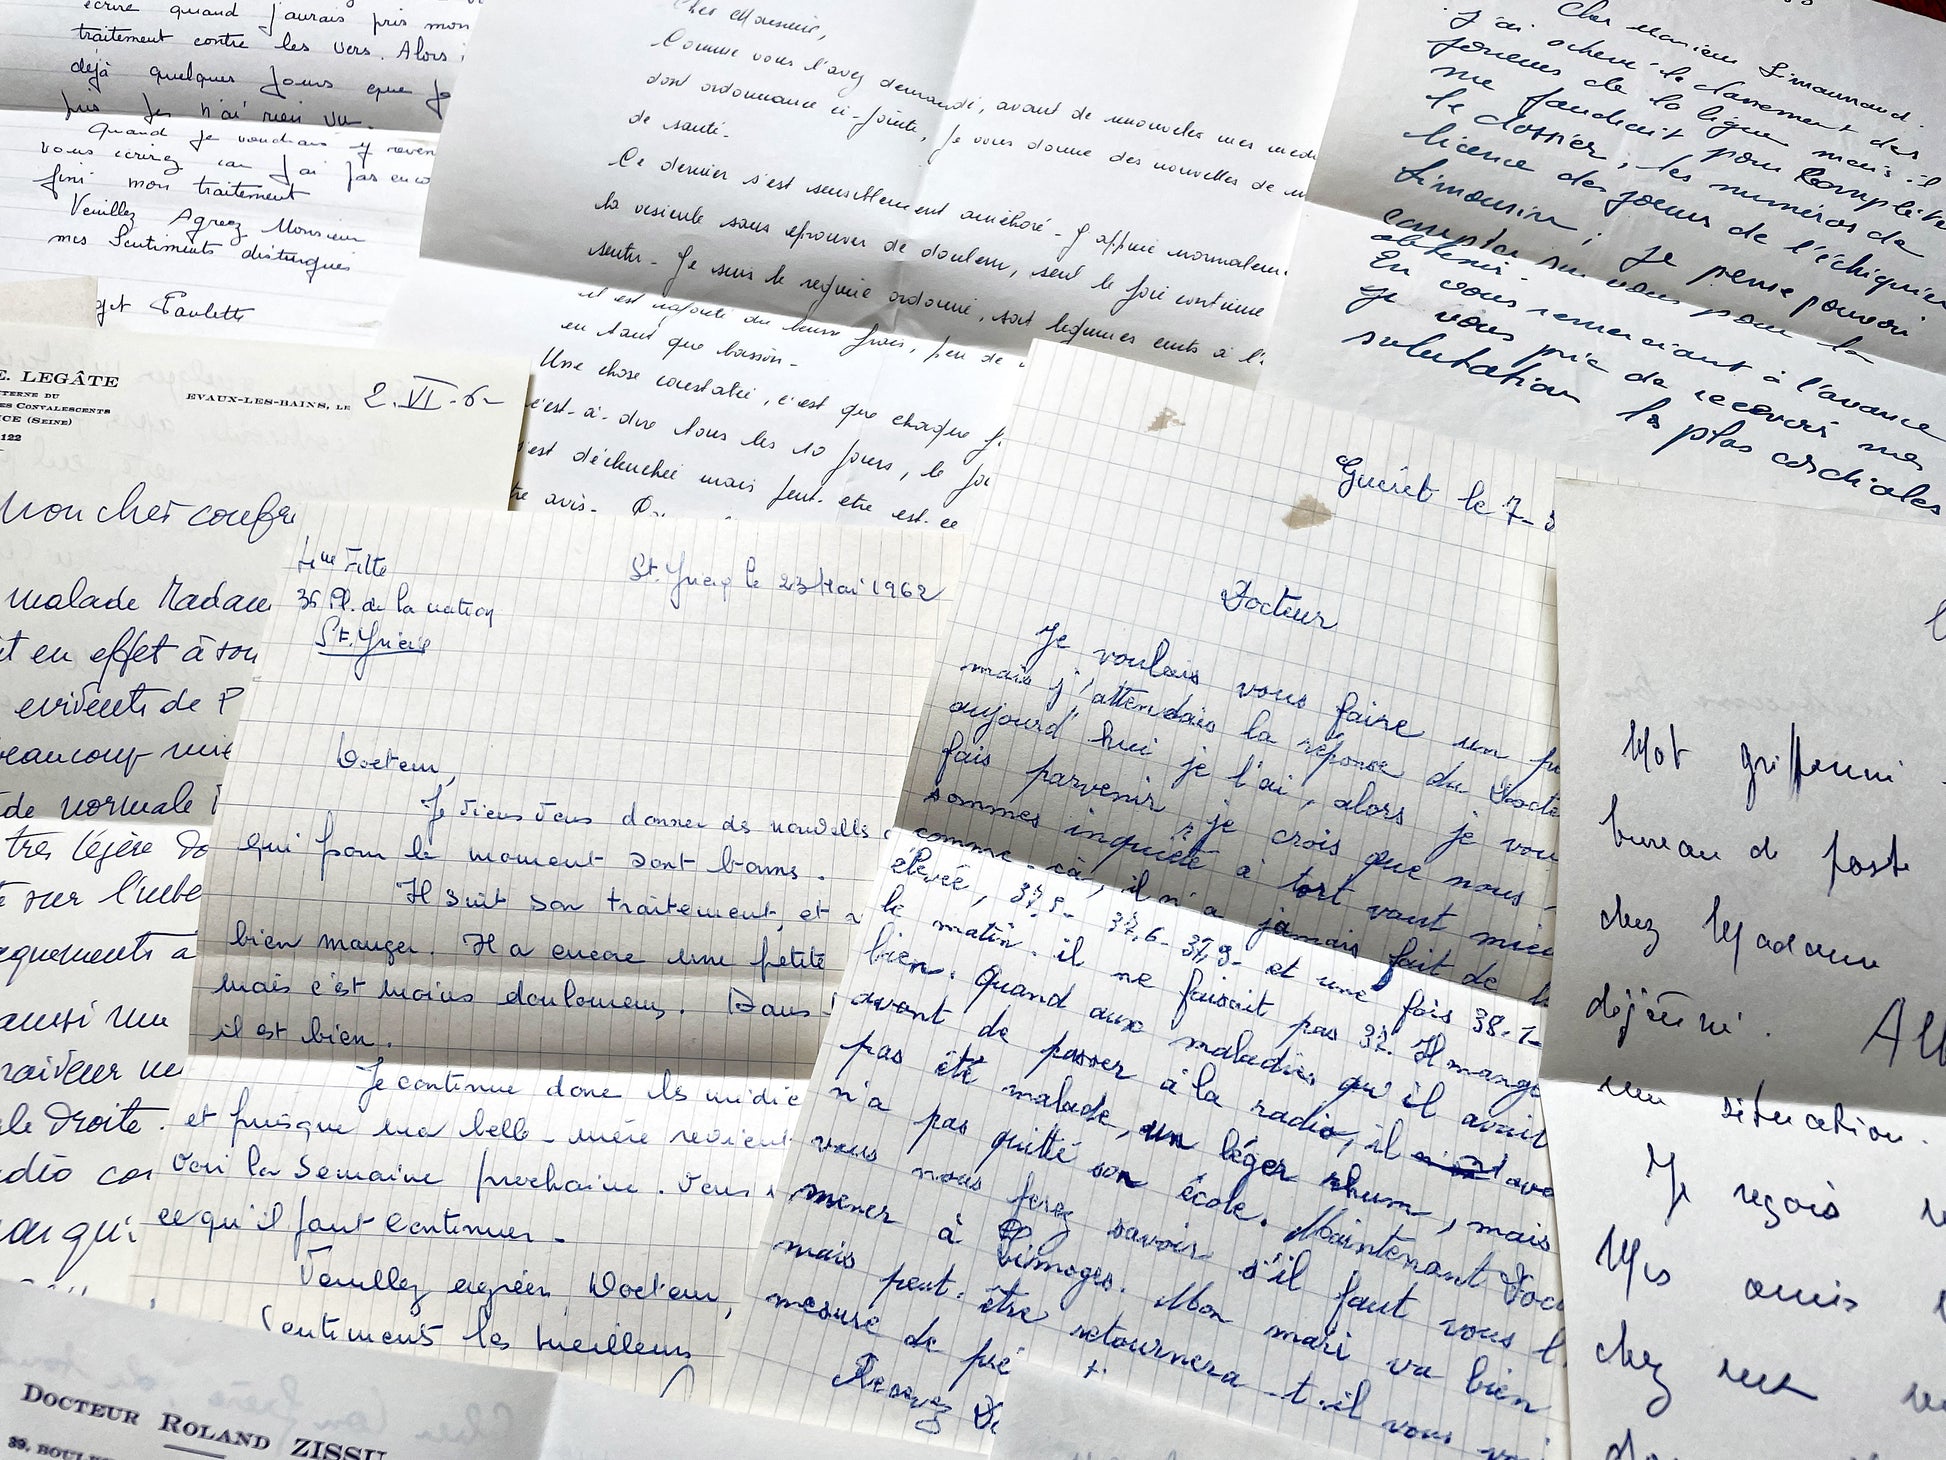 écrire quand j'aurais pris mon
traitement contre les vers. Alors
déjà quelques jours que je
pris je n'ai rien vu.
Quand je voudrais y reven
vous écrirez car j'ai pas enco
fini mon traitement
Veuillez Agreez Monsieur
mes Sentiments distingués
Paulette
Cher Monsieur,
Comme vous l'avez demandé, avant de renouveler mes médi
dont ordonnance ci-jointe, je vous donne des nouvelles de m
de santé-
Ce dernier s'est sensiblement amélioré - J'appuie normalem
la vésicule sans éprouver de douleur, seul le foie continue
sentir - Je suis le régime ordonné, soit légumes cuits à l'
il est rajouté du beurre frais, peu de
en tant que boisson -
Une chose constatée, c'est que chaque
c'est-à-dire tous les 10 jours, le
est déclenchée mais peut-être est-ce
avis.
Cher Monsieur Limousnaud.
J'ai achevé le classement des
joueurs de la ligue mais il
me faudrait pour compléter
le dossier, les numéros de
licence des joeurs de l'échiquier
Limousin ; je pense pouvoir
compter sur vous pour la
obtenir.
En vous remerciant à l'avance
je vous prie de recevoir mes
salutation les plas cordiales
E. LEGÂTE
TERNE DU
ES CONVALESCENTS
ICE (SEINE)
122
EVAUX-LES-BAINS, LE 2.VI.6
Mon cher confr
malade Madam
it en effet à son
évidents de P
beaucoup
de normale
très légère
sur l'
aussi un
le droite.
dio
qui
36 Pl. de la nation
St. Yrieix
St. Yrieix le 23 Mai 1962
Docteur,
Je viens vous donner des nouvelles
qui pour le moment sont bonnes.
Il suit son traitement, et
bien manger. Il a encore une petite
mais c'est moins douloureux. Dans
il est bien.
Je continue donc les médic
et puisque ma belle-mère revient
voir la semaine prochaine. Vous
ce qu'il faut continuer -
Veuillez agréer, Docteur,
Sentiments les meilleurs
Guéret le 7-
Docteur
Je voulais vous faire un
mais j'attendais la réponse du Docte
aujourd'hui je l'ai, alors je vou
fais parvenir, je crois que nous
sommes inquiété à tort vaut mieu
comme-cà, il n'a jamais fait de
élevée, 37,5- 37,6- 37,9- et une fois 38-1-
le matin. il ne faisait pas 37. Il mange
bien. Quand aux maladies qu'il avait
avant de passer à la radio, il
pas été malade, un léger rhum, mais
n'a pas quitté son école. Maintenant Doc
vous nous ferez savoir s'il faut vous l
mener à Limoges. Mon mari va bien
mais peut-être retournera-t-il vous voi
mesure de pré
Recevez
Mot griffonné
bureau de poste
chez Madame
déjeûné.
Al
situation.
Je reçois
Mes amis
chez
DOCTEUR ROLAND ZISSU
39, BOULE